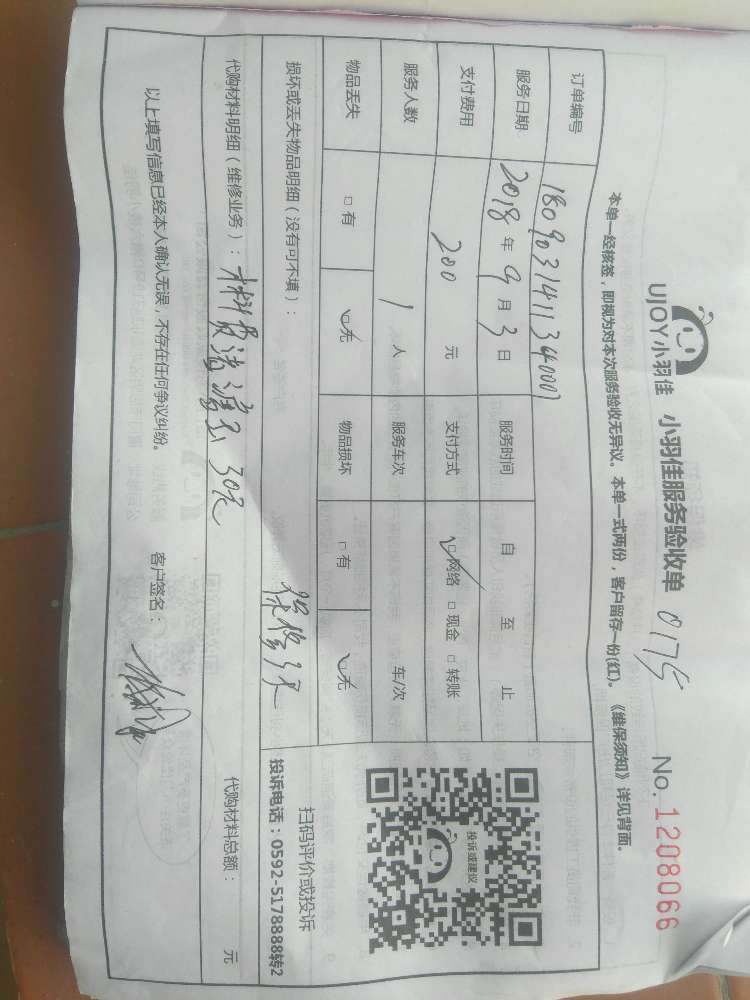 UJOY小羽佳 小羽佳服务验收单 0175 No. 1208066
本单一经核签，即视为对本次服务验收无异议。本单一式两份，客户留存一份(红)。《维保须知》详见背面。
订单编号 1809031411340007
服务日期 2018年9月3日 服务时间 自 至 止
支付费用 200 元 支付方式 ☑网络 □现金 □转账
服务人数 1 人 服务车次 车/次
物品丢失 □有 ☑无 物品损坏 □有 ☑无
投诉或建议
损坏或丢失物品明细（没有可不填）：
保修3天
扫码评价或投诉
投诉电话：0592-5178888转2
代购材料明细（维修业务）：材料费 30元 代购材料总额： 元
以上填写信息已经本人确认无误，不存在任何争议纠纷。 客户签名：